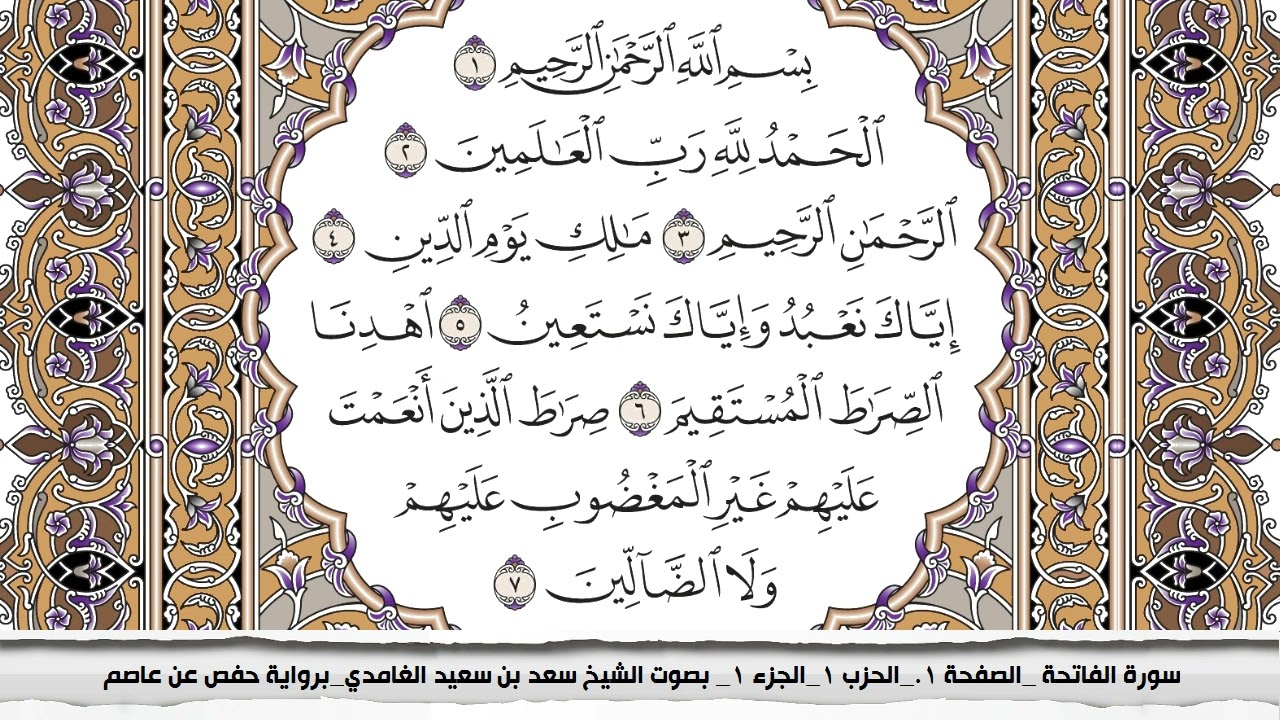 بِسْمِ ٱللَّهِ ٱلرَّحْمَٰنِ ٱلرَّحِيمِ ١
ٱلْحَمْدُ لِلَّهِ رَبِّ ٱلْعَٰلَمِينَ ٢
ٱلرَّحْمَٰنِ ٱلرَّحِيمِ ٣ مَٰلِكِ يَوْمِ ٱلدِّينِ ٤
إِيَّاكَ نَعْبُدُ وَإِيَّاكَ نَسْتَعِينُ ٥ ٱهْدِنَا
ٱلصِّرَٰطَ ٱلْمُسْتَقِيمَ ٦ صِرَٰطَ ٱلَّذِينَ أَنْعَمْتَ
عَلَيْهِمْ غَيْرِ ٱلْمَغْضُوبِ عَلَيْهِمْ
وَلَا ٱلضَّآلِّينَ ٧
سورة الفاتحة _الصفحة ١._الحزب ١_الجزء ١_ بصوت الشيخ سعد بن سعيد الغامدي_برواية حفص عن عاصم